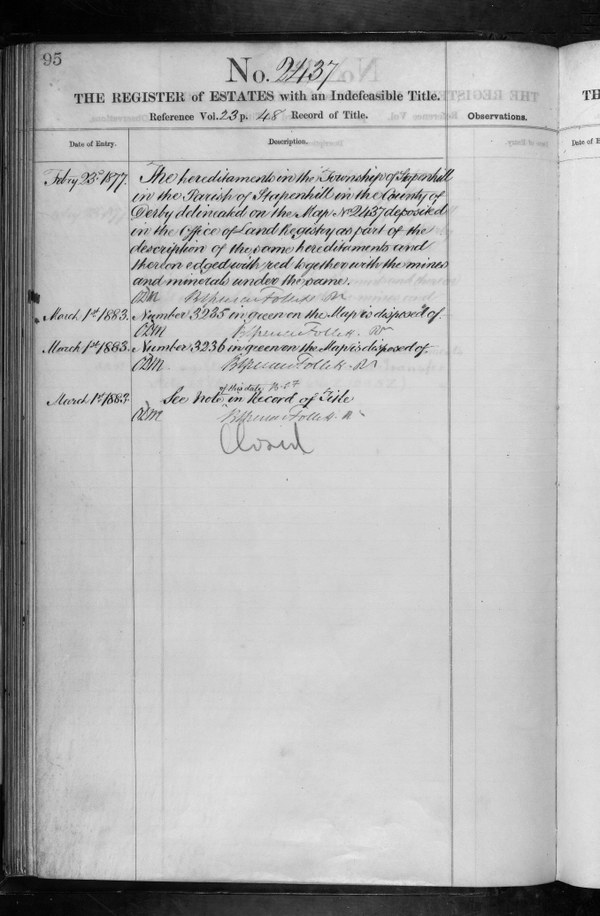 95
No. 2437
THE REGISTER of ESTATES with an Indefeasible Title.
Reference Vol. 23 p. 48 Record of Title.
Observations.
Date of Entry.
Description.
Febry 23rd 1877.
The hereditaments in the Township of Stapenhill
in the Parish of Stapenhill in the County of
Derby delineated on the Map No 2437 deposited
in the Office of Land Registry as part of the
description of the same hereditaments and
thereon edged with red together with the mines
and minerals under the same.
B Spencer Follett R
March 1st 1883. Number 3235 in green on the Map is disposed of.
B Spencer Follett R
March 1st 1883. Number 3236 in green on the Map is disposed of.
B Spencer Follett R
of this date B.S.F
March 1st 1883. See Note in Record of Title
B Spencer Follett R
Closed
TH
Date of E